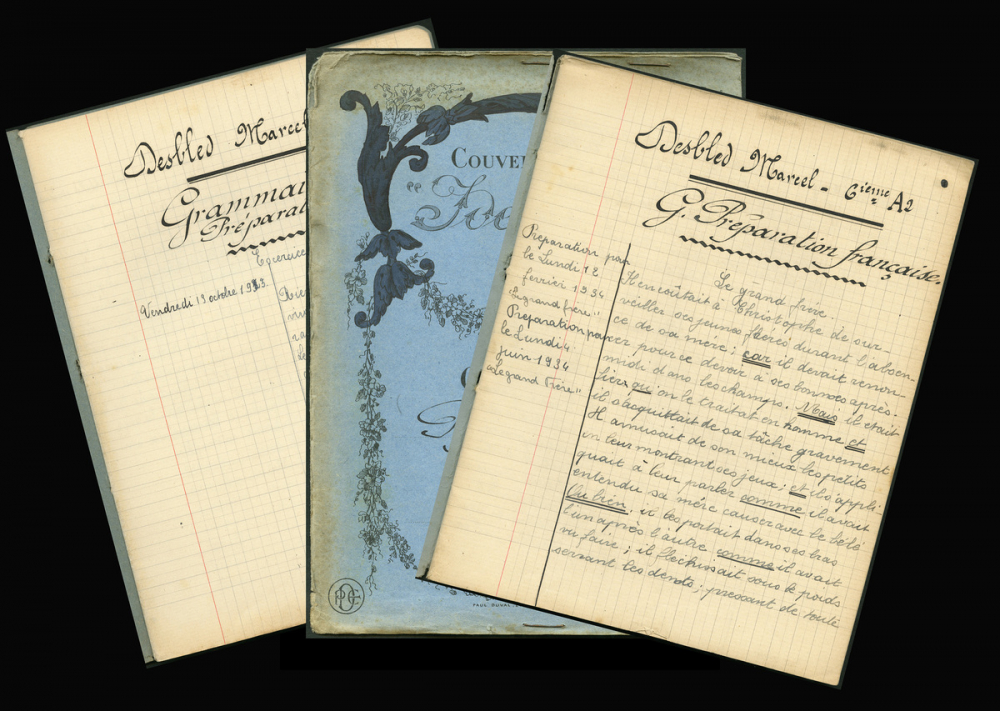 Desbled Marcel
Grammai
Préparat
Exercice
Vendredi 13 octobre 1933.
COUVE
"Joc
PAUL DUVAL
Desbled Marcel - 6ième A2
G. Préparation française.
Preparation pour
le Lundi 12
fevrier 1934
"Legrand frère"
Preparation pour
le Lundi 4
juin 1934
"Legrand Frère"
Le grand frère.
Il en coûtait à Christophe de sur-
veiller ses jeunes frères durant l'absen-
ce de sa mère; car il devait renon-
cer pour ce devoir à ses bonnes après-
midi dans les champs. Mais il était
fier qu'on le traitat en homme et
il s'acquittait de sa tâche gravement
Il amusait de son mieux les petits
en leur montrant ses jeux; et il s'appli-
quait à leur parler comme il avait
entendu sa mère causer avec le bébé
Ou bien, il les portait dans ses bras
l'un après l'autre comme il avait
vu faire; il flechissait sous le poids
serrant les dents; pressant de toute